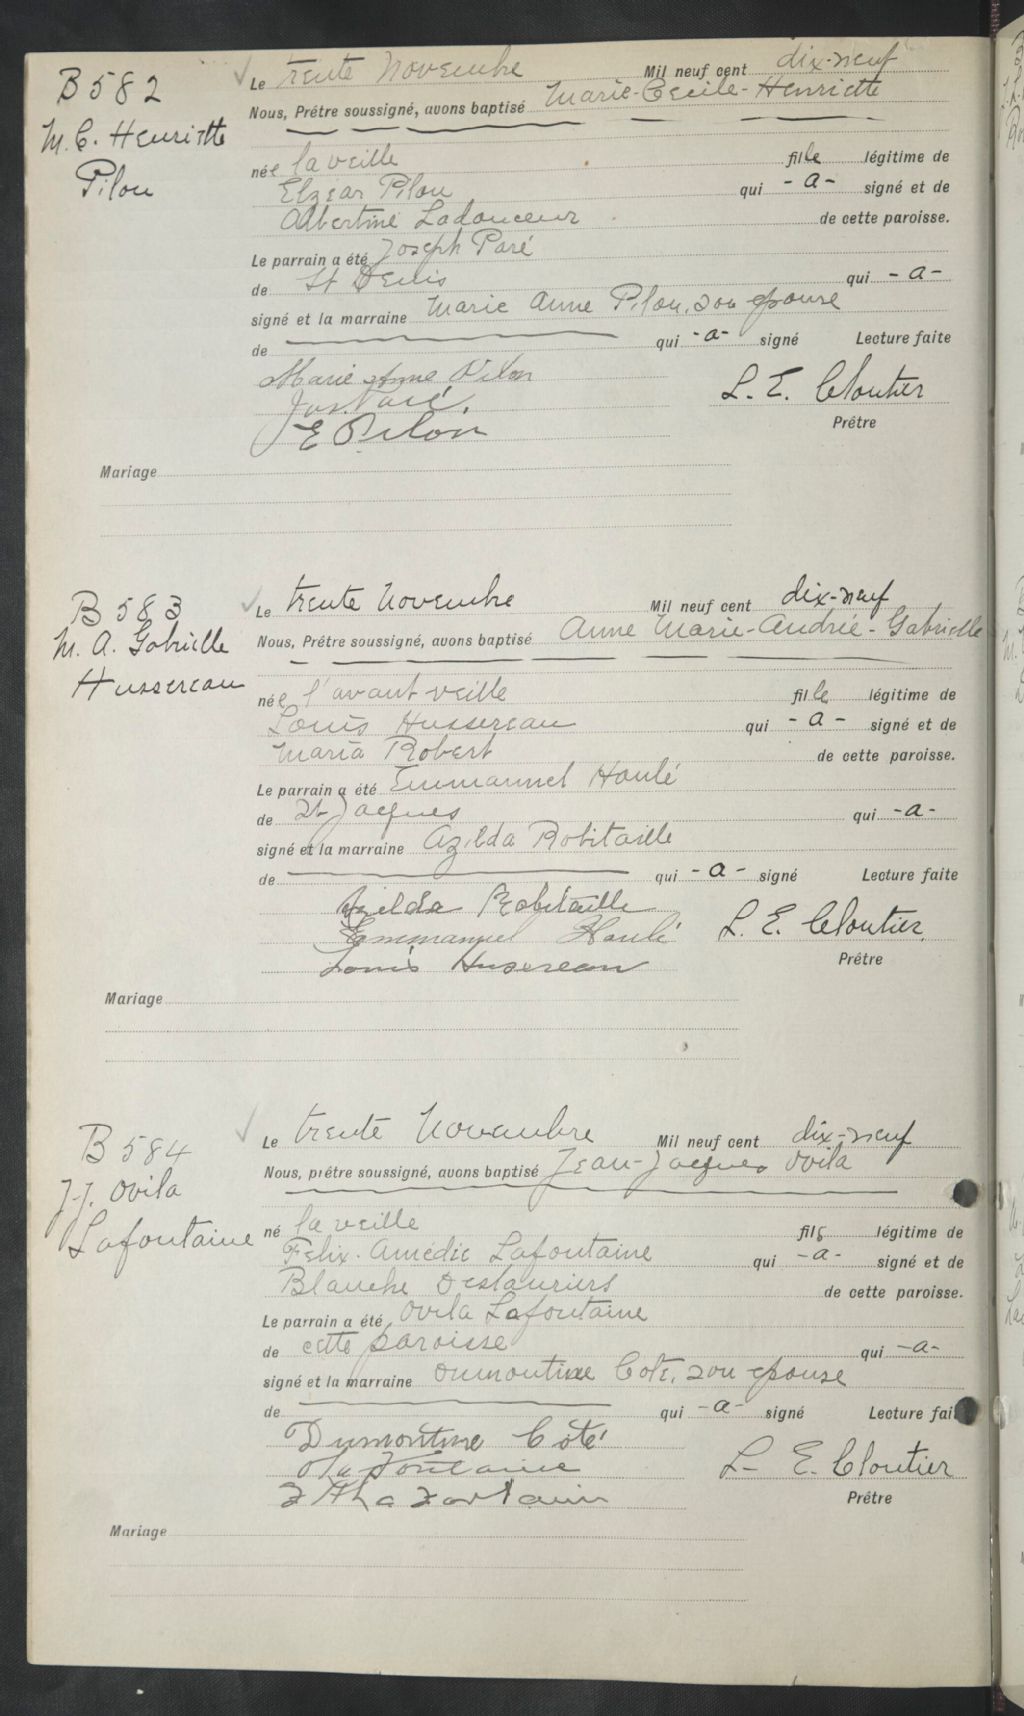 B 582
M. C. Henriette
Pilon
Le trente Novembre Mil neuf cent dix-neuf
Nous, Prêtre soussigné, avons baptisé Marie-Cecile-Henriette
née la veille fille légitime de
Elzéar Pilon qui -a- signé et de
Albertine Ladouceur de cette paroisse.
Le parrain a été Joseph Paré
de St Denis qui -a-
signé et la marraine Marie Anne Pilon, son épouse
de qui -a- signé Lecture faite
Marie Anne Pilon
Jos. Paré. L. E. Cloutier
E Pilon Prêtre
Mariage
B 583
M. A. Gabrielle
Hussereau
Le trente Novembre Mil neuf cent dix-neuf
Nous, Prêtre soussigné, avons baptisé Anne Marie-Andrée-Gabrielle
née l'avant-veille fille légitime de
Louis Hussereau qui -a- signé et de
Maria Robert de cette paroisse.
Le parrain a été Emmanuel Houlé
de St Jacques qui -a-
signé et la marraine Azilda Robitaille
de qui -a- signé Lecture faite
Azilda Robitaille
Emmanuel Houlé L. E. Cloutier
Louis Husereau Prêtre
Mariage
B 584
J-J. Ovila
Lafontaine
Le trente Novembre Mil neuf cent dix-neuf
Nous, prêtre soussigné, avons baptisé Jean-Jacques Ovila
né la veille fils légitime de
Felix-Amédie Lafontaine qui -a- signé et de
Blanche Deslauriers de cette paroisse.
Le parrain a été Ovila Lafontaine
de cette paroisse qui -a-
signé et la marraine Dumontine Coté, son épouse
de qui -a- signé Lecture fai
Dumontine Côté
L- E. Cloutier
Prêtre
Mariage